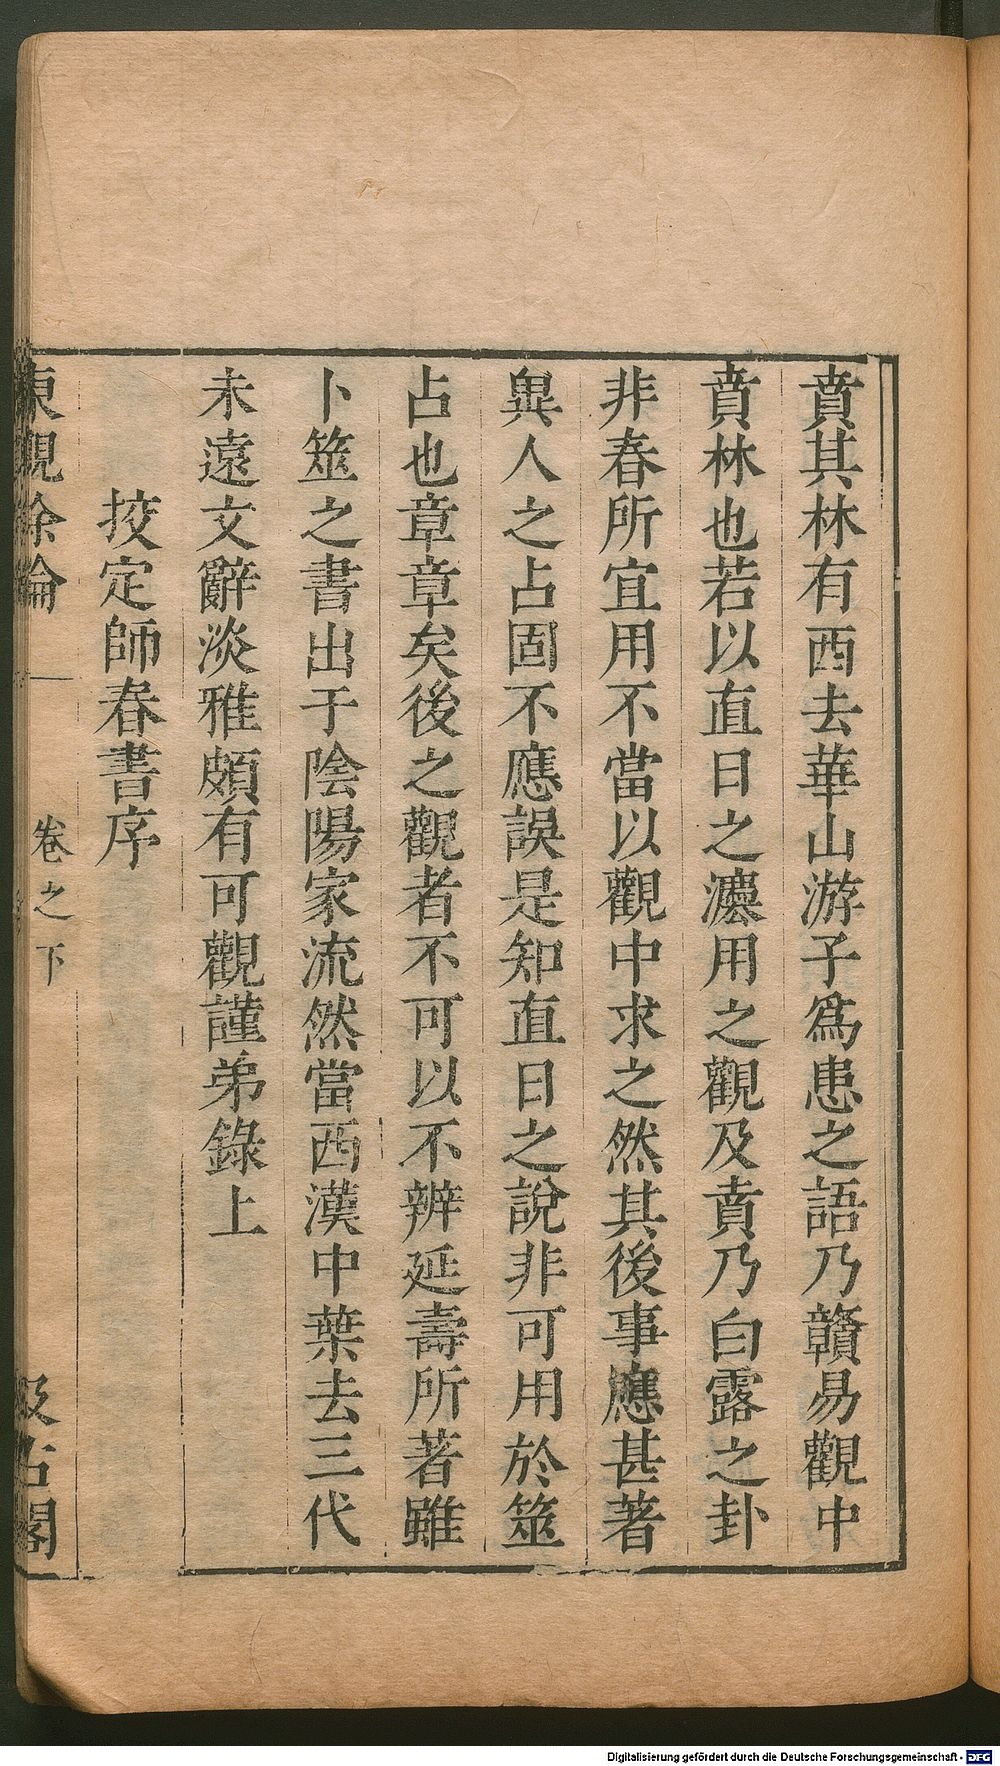 賁其林有西去華山游子爲患之語乃贛易觀中
賁林也若以直日之灋用之觀及賁乃白露之卦
非春所宜用不當以觀中求之然其後事應甚著
異人之占固不應誤是知直日之說非可用於筮
占也章章矣後之觀者不可以不辨延壽所著雖
卜筮之書出于陰陽家流然當西漢中葉去三代
未遠文辭淡雅頗有可觀謹弟錄上
挍定師春書序
東觀余論
卷之下
汲古閣
Digitalisierung gefördert durch die Deutsche Forschungsgemeinschaft - DFG